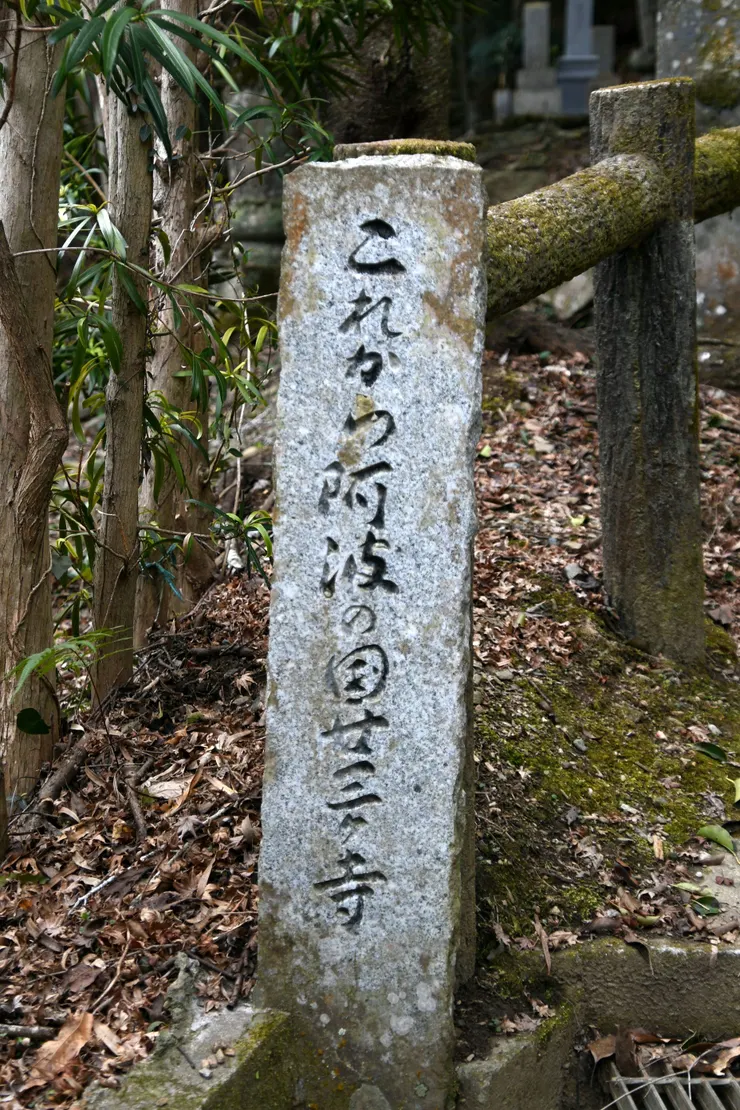 これから阿波の国廿三ヶ寺